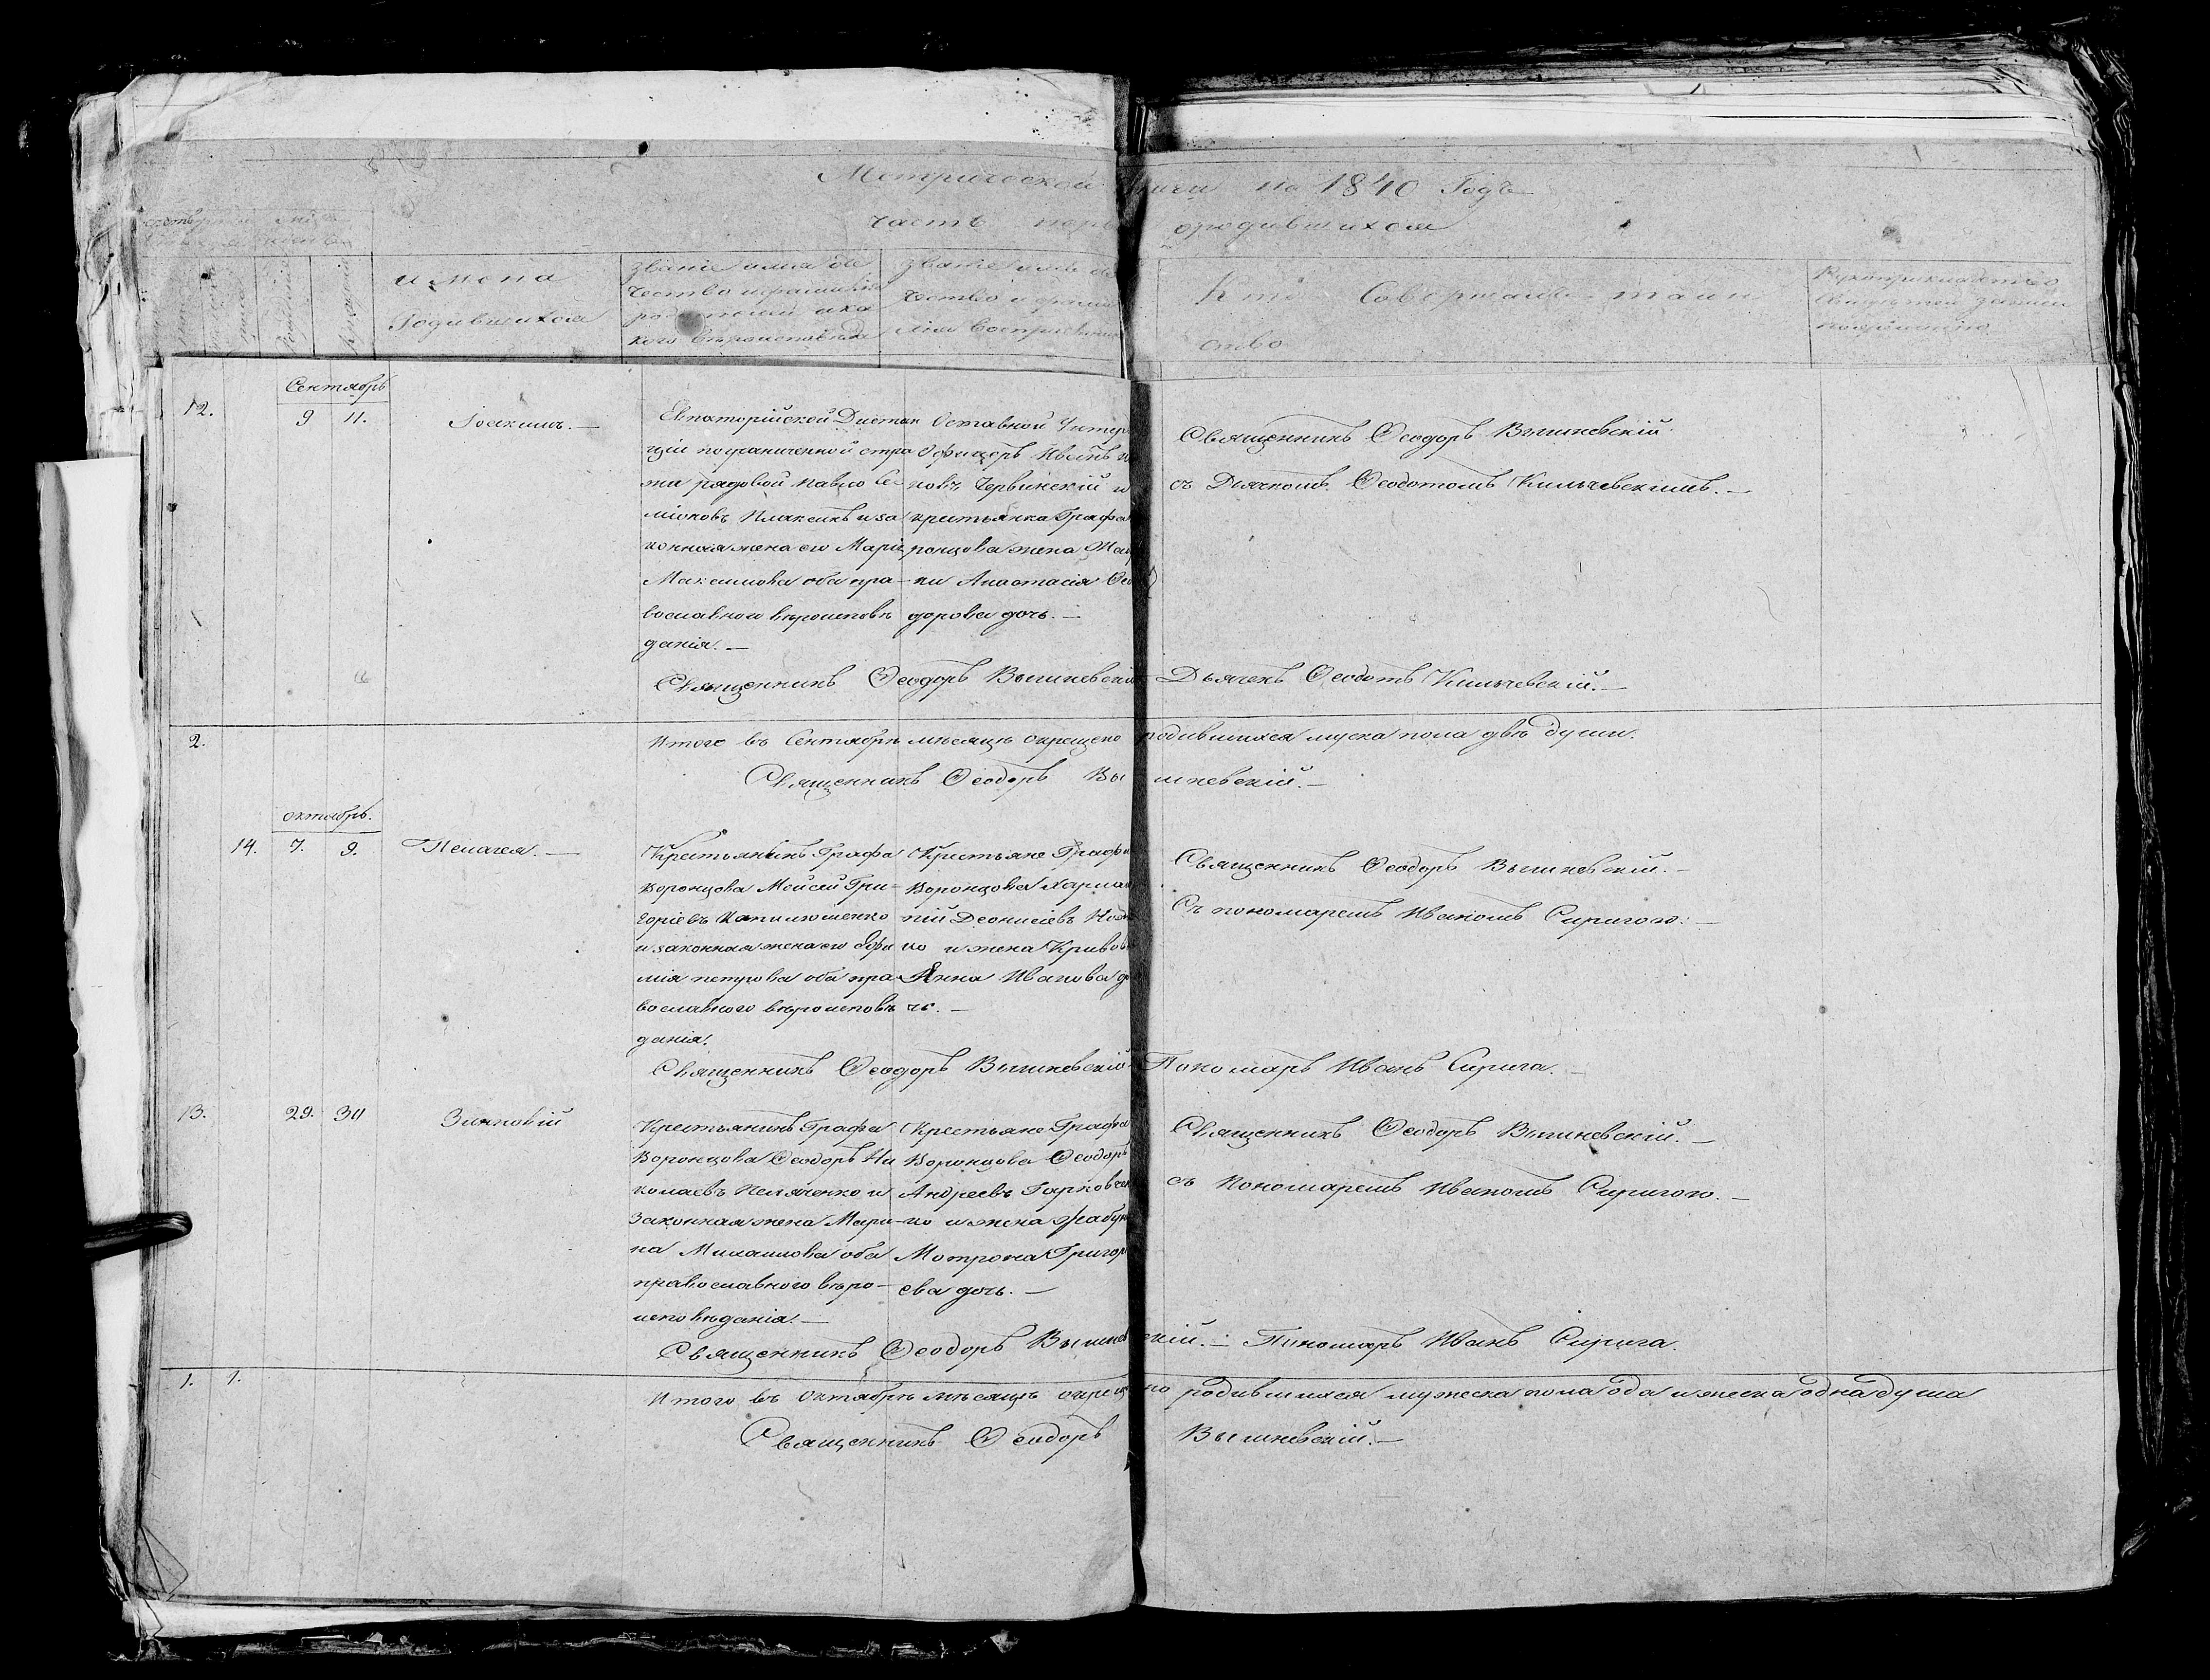 Метрической книги на 1840 Годъ
часть перв о родившихся
имена
Родившихся
Званіе имя оте
чество и фамилія
родителей и ка
кого вѣроисповѣд
Званіе имя от
чество и фами
лія воспріемник
Кто Совершалъ таин
ство
Рукоприкладство
свидѣтелей записи
по желанію
Сентябрь
12.
9 11.
Іоакимъ. —
Евпаторійской Дистан
ціи пограничной стра
жи рядовой Павло Се-
міоновъ Плаксинъ и за
конная жена его Марія
Максимова оба пра-
вославнои вѣроисповѣ
данія. —
Оставной Унтер
Офицеръ Иванъ
новъ Червинскій и
крестьянка Графа
ронцова жена
ки Анастасія Ѳео
дорова дочь. —
Священникъ Ѳеодоръ Вышневскій
съ Дьячкомъ Ѳеодотомъ Кильчевскимъ. —
Священникъ Ѳеодоръ Вышневскій Дьячекъ Ѳеодотъ Кильчевскій. —
2.
Итого въ Сентябрѣ мѣсяцѣ окрещено родившихся муска пола двѣ души.
Священникъ Ѳеодоръ Вышневскій. —
октябрь.
14. 7. 9.
Пелагея. —
Крестьянинъ Графа
Воронцова Мойсей Гри-
горіевъ
и законная жена его Ефи
мія петрова оба пра-
вославного вѣроисповѣ
данія.
Крестьяне Графа
Воронцова Харлам
пій Деонисіевъ
ко и жена
Анна Иванова до
чь. —
Священникъ Ѳеодоръ Вышневскій. —
Съ пономаремъ Иваномъ Сиригою. —
Священникъ Ѳеодоръ Вышневскій Пономарь Иванъ Сирига. —
13. 29. 30
Зинковій
Крестьянинъ Графа
Воронцова Ѳеодоръ Ни
колаевъ Пеляченко и
Законная жена Мари-
на Михаилова оба
православного вѣро-
исповѣданія. —
Крестьяне Графа
Воронцова Ѳеодоръ
Андреевъ Гарковчен
ко и жена
Мотрона Григор
ева дочь. —
Священникъ Ѳеодоръ Вышневскій. —
съ Пономаремъ Иваномъ Сиригою. —
Священникъ Ѳеодоръ Вышневскій. — Пономарь Иванъ Сирига.
1. 1.
Итого въ Октябрѣ мѣсяцѣ окрещено родившихся мужеска пола одна и женска одна душа
Священникъ Ѳеодоръ Вышневскій. —